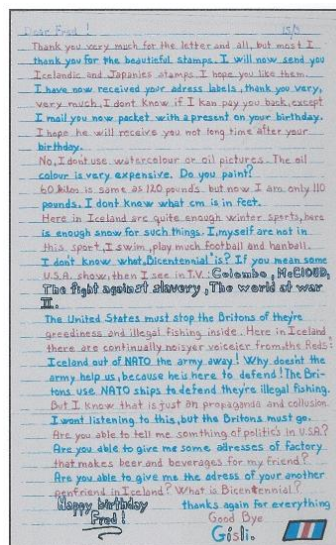 Dear Fred! 15/3
Thank you very much for the letter and all, but most I
thank you for the beautiful stamps. I will now send you
Icelandic and Japanies stamps. I hope you like them.
I have now received your adress labels, thank you very,
very much, I dont know if I kan pay you back, except
I mail you now packet with a present on your birthday.
I hope he will receive you not long time after your
birthday.
No, I dont use watercolour or oil pictures. The oil
colour is very expensive. Do you paint?
60 kilos is same as 120 pounds but now I am only 110
pounds. I dont know what cm is in feet.
Here in Iceland are quite enough winter sports, here
is enough snow for such things. I, myself are not in
this sport, I swim, play much football and hanball.
I don't know what "Bicentennial" is? If you mean some
U.S.A. show, then I see in T.V.: Colombo, McCLOUD,
The fight against slavery, The world at war
II.
The United States must stop the Britons of they're
greediness and illegal fishing inside. Here in Iceland
there are continually noisyer voiceier from the Reds:
Iceland out of NATO the army away! Why doesnt the
army help us, because he is here to defend! The Bri-
tons use NATO ships to defend they're illegal fishing.
But I know that is just an propaganda and collusion.
I wont listening to this, but the Britons must go.
Are you able to tell me somthing of politics in U.S.A?
Are you able to give me some adresses of factory
that makes beer and beverages for my friend?
Are you able to give me the adress of your another
penfriend in Iceland? What is Bicentennial?
Happy birthday thanks again for everything
Fred! Good Bye
Gísli.